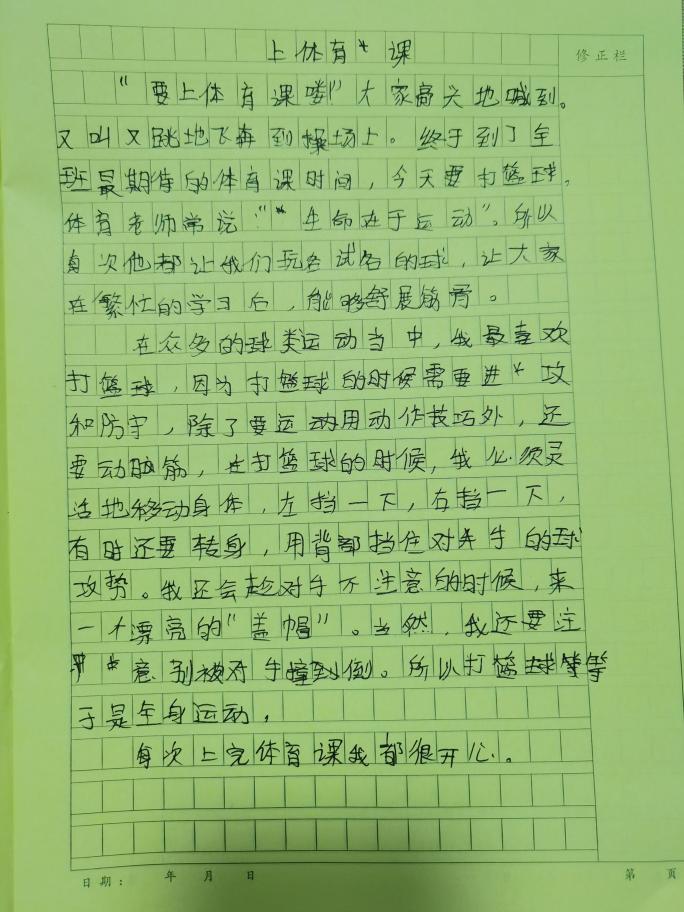 上体育课
修正栏
“要上体育课喽!”大家高兴地喊到。
又叫又跳地飞奔到操场上。终于到了全
班最期待的体育课时间，今天要打篮球，
体育老师常说“生命在于运动”。所以
每次他都让我们玩各试各的球，让大家
在繁忙的学习后，能够舒展筋骨。
在众多的球类运动当中，我最喜欢
打篮球，因为打篮球的时候需要进攻
和防守，除了要运动用动作技巧外，还
要动脑筋，在打篮球的时候，我必须灵
活地移动身体，左挡一下，右挡一下，
有时还要转身，用背部挡住对手的球
攻势。我还会趁对手不注意的时候，来
一个漂亮的“盖帽”。当然，我还要注
意别被对手撞到倒。所以打篮球等等
于是全身运动，
每次上完体育课我都很开心。
日期： 年 月 日
第 页